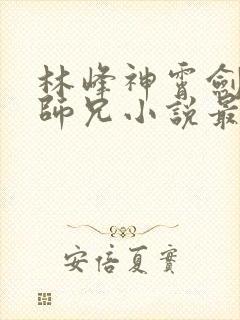 林峰神霄劍
師兄小說最
安倍夏實